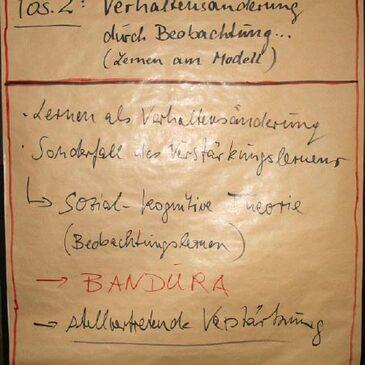 Pos. 2: Verhaltensänderung
durch Beobachtung...
(Lernen am Modell)
· Lernen als Verhaltensänderung
· Sonderfall des Verstärkungslernens
↳ Sozial-kognitive Theorie
(Beobachtungslernen)
→ BANDURA
→ stellvertretende Verstärkung